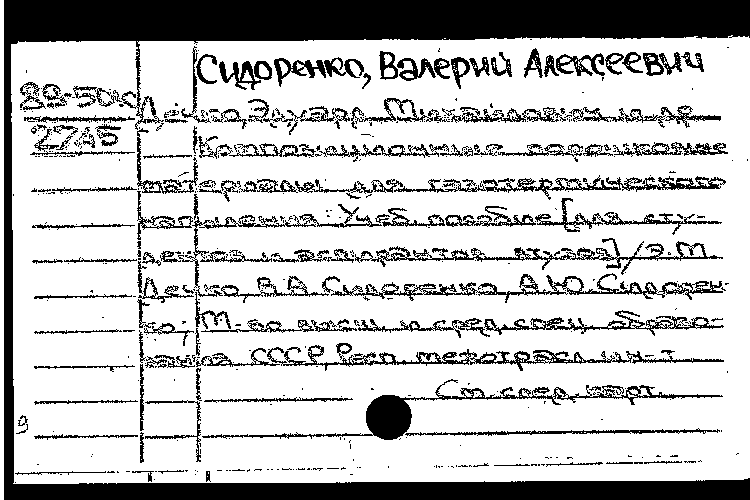 Сидоренко, Валерий Алексеевич
Дечко, Эдуард Михайлович и др
Композиционные порошковые
материалы для газотермического
напыления: Учеб. пособие [для сту-
дентов и аспирантов втузов] / Э.М.
Дечко, В.А Сидоренко, А.Ю. Сидорен-
ко; М-во высш. и сред. спец. образо-
вания СССР, Респ. межотрасл. ин-т
См. след. карт.
9